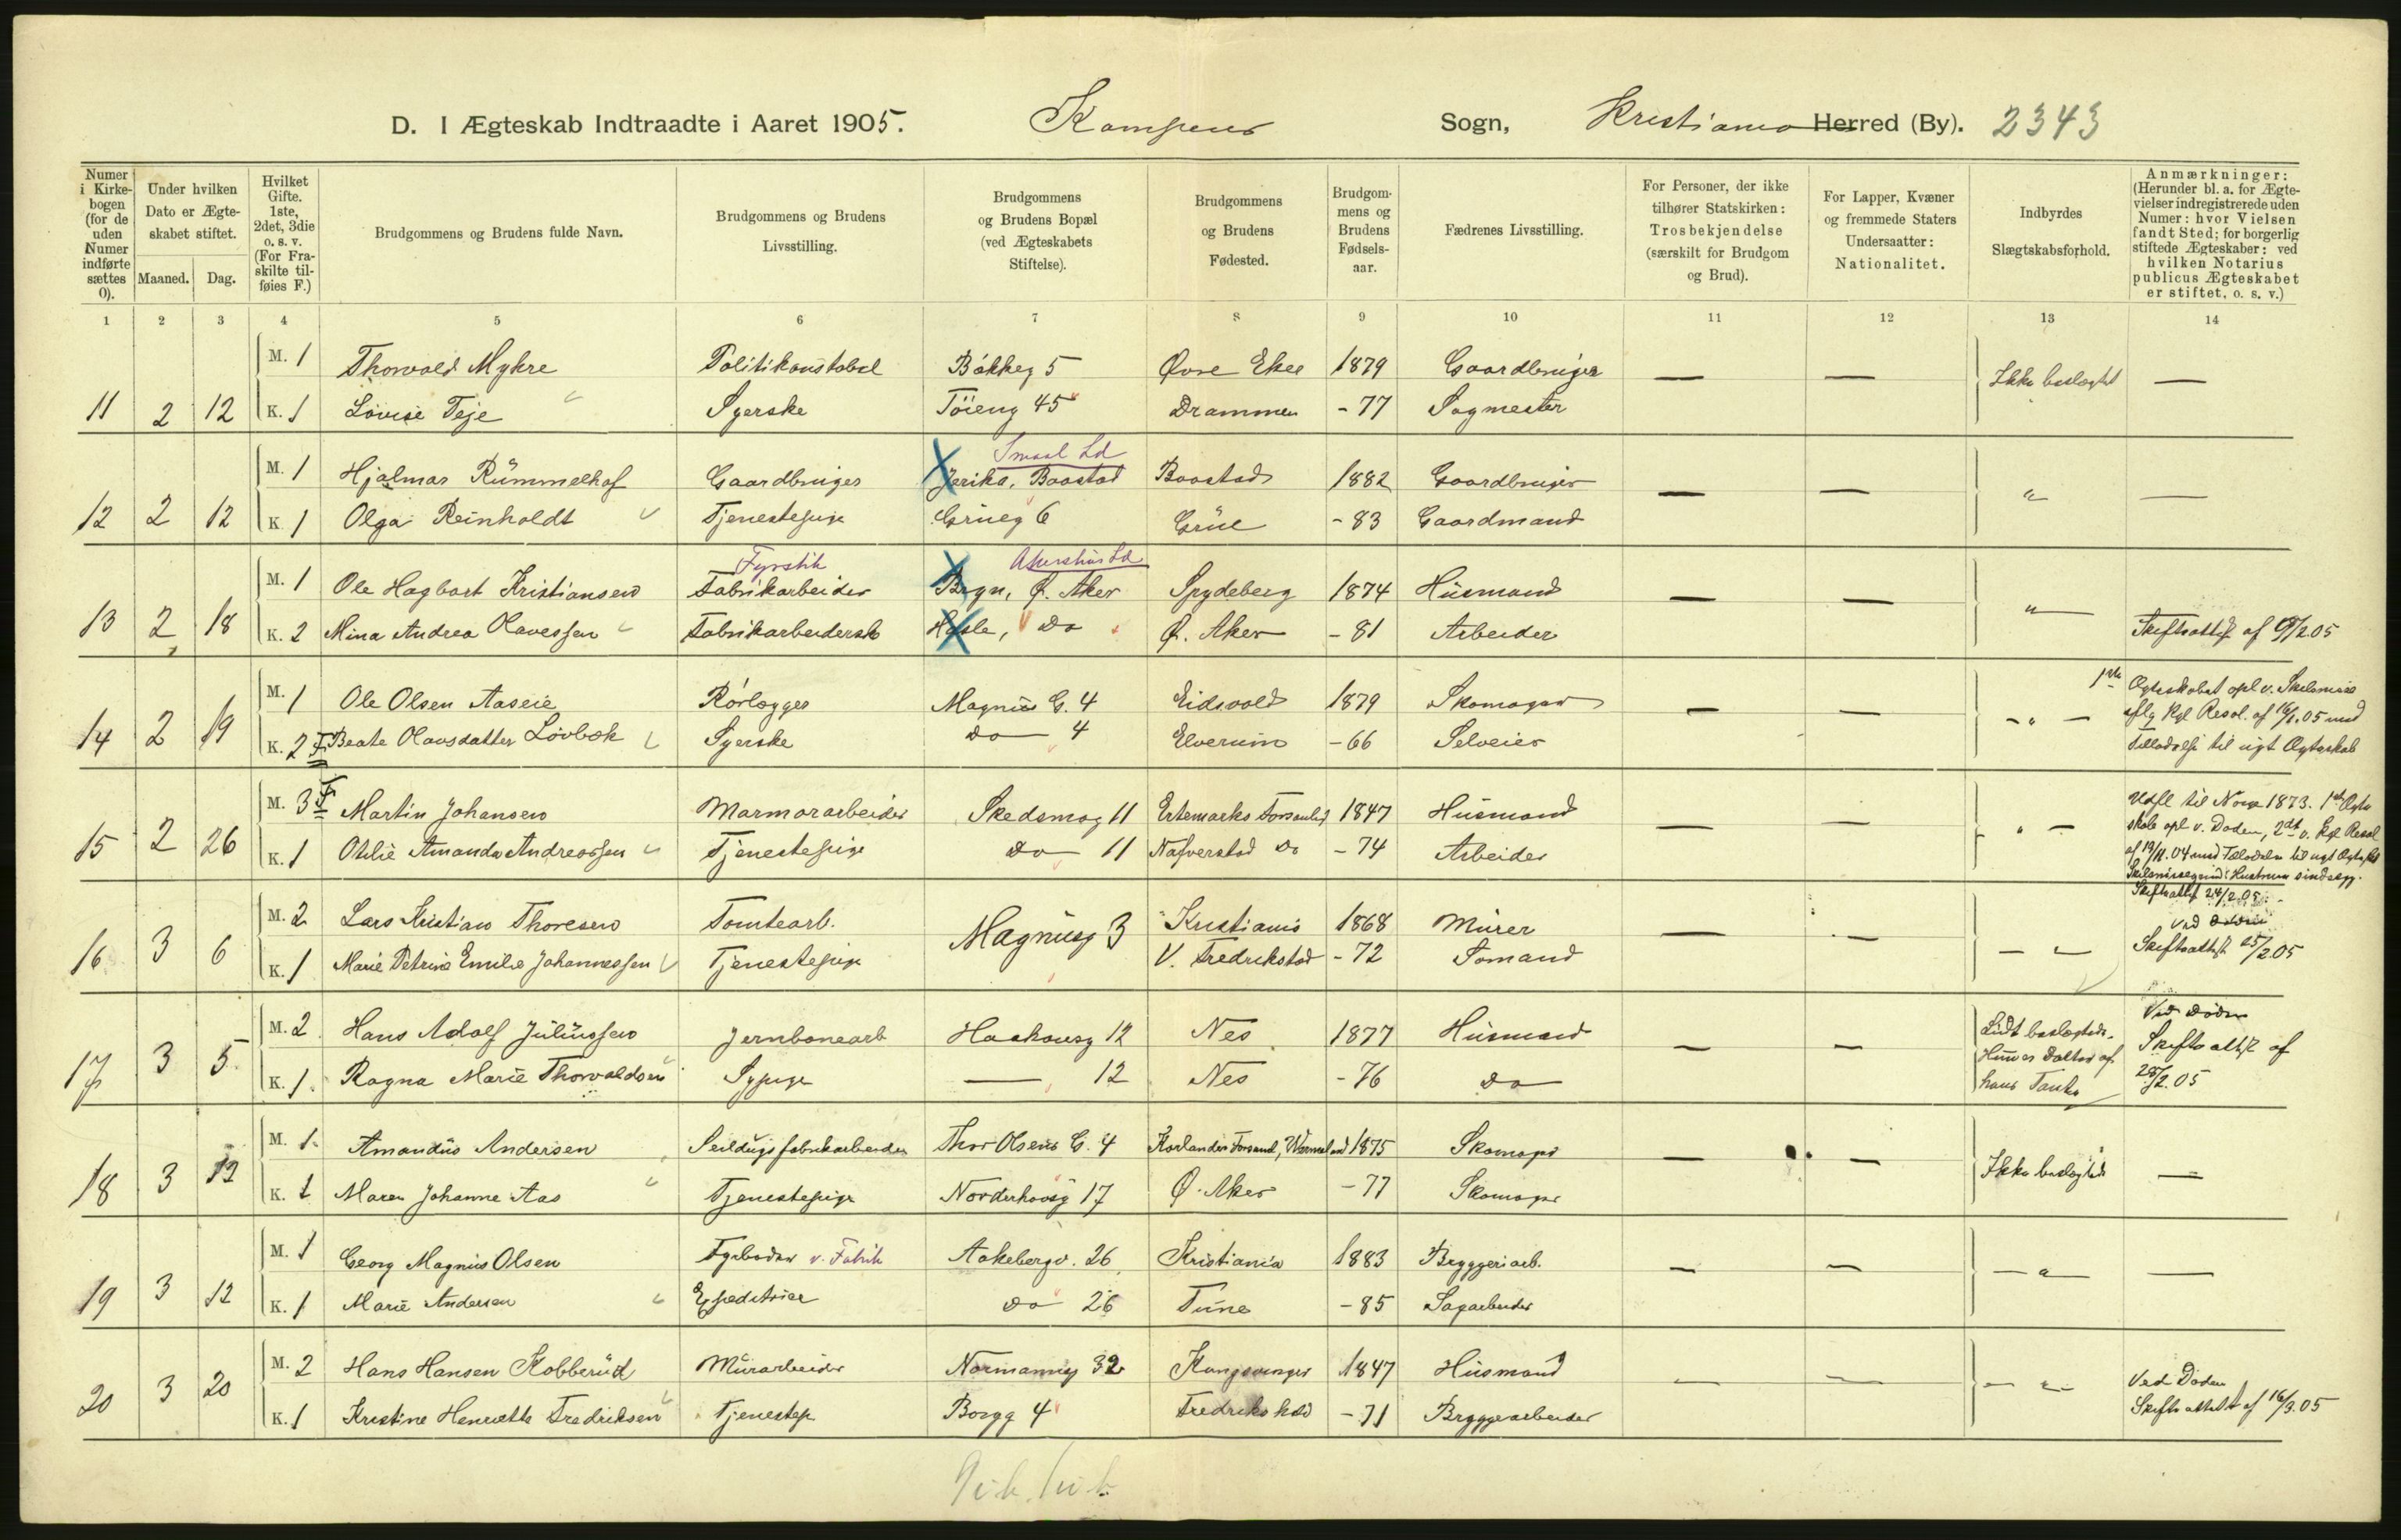 D. I Ægteskab Indtraadte i Aaret 1905. Kampens Sogn, Kristiania Herred (By). 2343
Numer i Kirkebogen (for de uden Numer indførte sættes 0).
Under hvilken Dato er Ægteskabet stiftet.
Maaned. Dag.
Hvilket Gifte. 1ste, 2det, 3die o. s. v. (For Fraskilte tilføies F.)
Brudgommens og Brudens fulde Navn.
Brudgommens og Brudens Livsstilling.
Brudgommens og Brudens Bopæl (ved Ægteskabets Stiftelse).
Brudgommens og Brudens Fødested.
Brudgommens og Brudens Fødselsaar.
Fædrenes Livsstilling.
For Personer, der ikke tilhører Statskirken: Trosbekjendelse (særskilt for Brudgom og Brud).
For Lapper, Kvæner og fremmede Staters Undersaatter: Nationalitet.
Indbyrdes Slægtskabsforhold.
Anmærkninger: (Herunder bl. a. for Ægtevielser indregistrerede uden Numer: hvor Vielsen fandt Sted; for borgerlig stiftede Ægteskaber: ved hvilken Notarius publicus Ægteskabet er stiftet, o. s. v.)
1 2 3 4 5 6 7 8 9 10 11 12 13 14
M. 1 Thorvald Myhre Politikonstabel Bökkeg 5 Øvre Eker 1879 Gaardbruger — — Ikke beslægtet —
11 2 12 K. 1 Lovise Teje Syerske Töieng 45 Drammen - 77 Sagmester
Smaal Ld
M. 1 Hjalmar Rümmelhof Gaardbruger Jerika, Baastad Baastad 1882 Gaardbruger — — " —
12 2 12 K. 1 Olga Reinholdt Tjenestepige Grüeg 6 Grüe - 83 Gaardmand
Fyrstik Akershus Ld
M. 1 Ole Hagbart Kristiansen Fabrikarbeider Bryn, Ø. Aker Spydeberg 1874 Husmand — — "
13 2 18 K. 2 Mina Andrea Olavessen Fabrikarbeiderske Hasle, Do Ø. Aker - 81 Arbeider Skifteattest af 9/2.05
M. 1 Ole Olsen Aaseie Rörlægger Magnus G. 4 Eidsvold 1879 Skomager — — - " - 1ste Ægteskabet opl v. Skilsmisse
iflg Kgl Resol. af 16/1.05 med
14 2 19 K. 2 F Beate Olavsdatter Lövbæk Syerske Do 4 Elverum - 66 Selveier Tilladelse til nyt Ægteskab
M. 3 F Martin Johansen Marmorarbeider Skedsmog 11 Ertemarks Forsamling 1847 Husmand — — " - Udfl til Norge 1873. 1ste Ægte
skab opl v. Döden, 2det v. Kgl Resol
15 2 26 K. 1 Otilie Amanda Andreassen Tjenestepige Do 11 Nafverstad Do - 74 Arbeider af 19/11.04 med Tilladelse til nyt Ægteskab
Skilsmissegrund: Hustruen sindssyg.
Skifteattest 24/2.05.
M. 2 Lars Kristian Thoresen Tomtearb. Magnusg 3 Kristiania 1868 Murer — — - " - Ved Döden
16 3 6 K. 1 Marie Petrine Emilie Johannessen Tjenestepige V. Fredrikstad - 72 Sömand Skifteattest 25/2.05
M. 2 Hans Adolf Juliussen Jernbanearb Haakonsg 12 Nes 1877 Husmand — — Lidt beslægtede. Ved Döden
Hun er Datter af Skifteattest af
17 3 5 K. 1. Ragna Marie Thorvaldsen Sypige — 12 Nes - 76 Do hans Tante 28/2.05
M. 1. Amandus Andersen Seildugsfabrikarbeider Thor Olsens G. 4 Karlanders Forsaml, Wermeland 1875 Skomager — — Ikke beslægtede —
18 3 12 K. 1 Maren Johanne Aas Tjenestepige Norderhovsg 17 Ø. Aker - 77 Skomager
M. 1 Georg Magnus Olsen Fyrböder v. Fabrik Aakebergv. 26 Kristiania 1883 Bryggeriarb. — — — " — —
19 3 12 K. 1 Marie Andersen Expeditrice Do 26 Tune - 85 Sagarbeider
M. 2 Hans Hansen Kobberud Murarbeider Normannsg 32 Kongsvinger 1847 Husmand — — - " - Ved Döden
20 3 20 K. 1 Kristine Henriette Fredriksen Tjenestep Borgg 4 Fredrikshald - 71 Bryggearbeider Skifteattest af 16/3.05